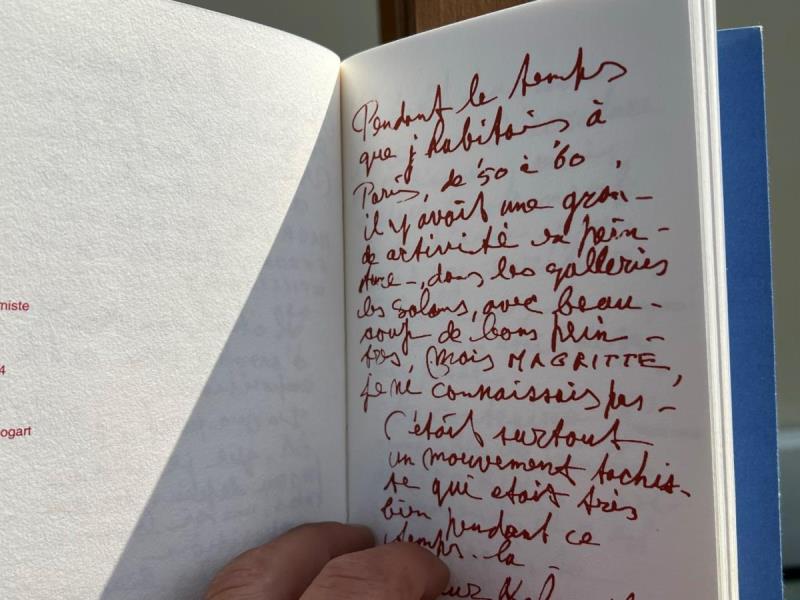 niste
4
ogart
Pendant le temps
que j'habitais à
Paris, de '50 à '60,
il y avait une gran-
de activité en pein-
ture-, dans les galleries
les salons, avec beau-
coup de bons pein-
tres, mais MAGRITTE,
je ne connaissais pas-
C'était surtout
un mouvement tachis-
te qui etait très
bien pendant ce
temps-la-